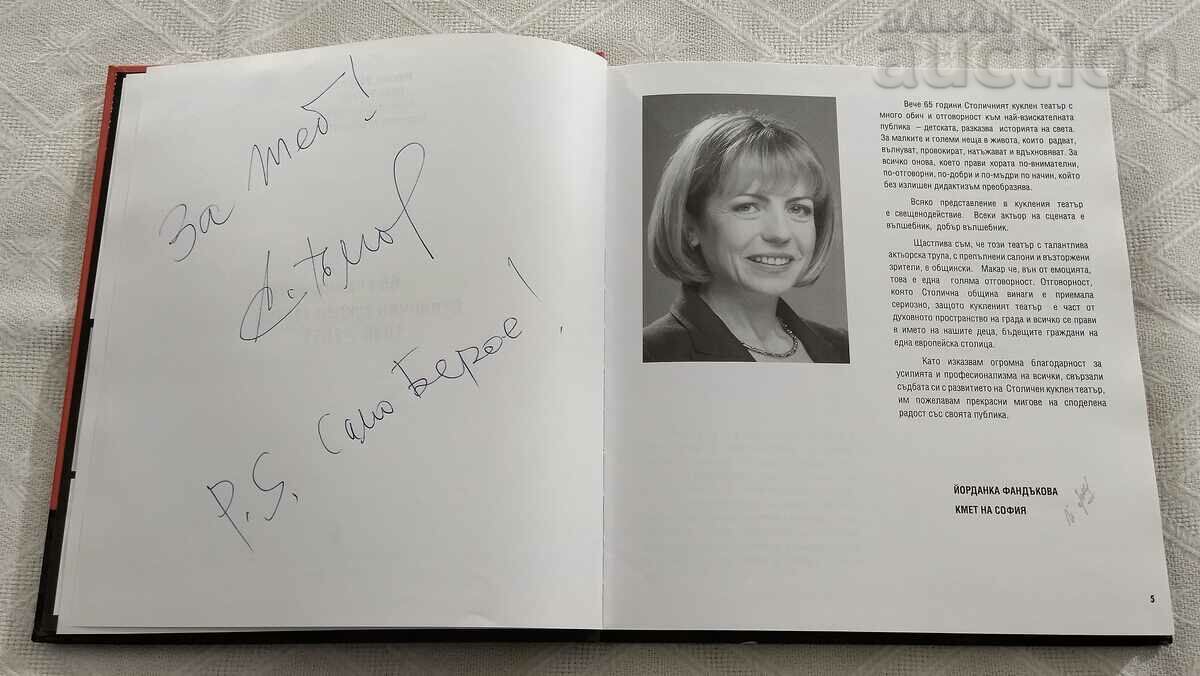 BALKAN
auction
За теб!
P.S. Само Берое!
Вече 65 години Столичният куклен театър с
много обич и отговорност към най-взискателната
публика – детската, разказва историята на света.
За малките и големи неща в живота, които радват,
вълнуват, провокират, натъжават и вдъхновяват. За
всичко онова, което прави хората по-внимателни,
по-отговорни, по-добри и по-мъдри по начин, който
без излишен дидактизъм преобразява.
Всяко представление в кукления театър
е свещенодействие. Всеки актьор на сцената е
вълшебник, добър вълшебник.
Щастлива съм, че този театър с талантлива
актьорска трупа, с препълнени салони и възторжени
зрители, е общински. Макар че, вън от емоцията,
това е една голяма отговорност. Отговорност,
която Столична община винаги е приемала
сериозно, защото кукленият театър е част от
духовното пространство на града и всичко се прави
в името на нашите деца, бъдещите граждани на
една европейска столица.
Като изказвам огромна благодарност за
усилията и професионализма на всички, свързали
съдбата си с развитието на Столичен куклен театър,
им пожелавам прекрасни мигове на споделена
радост със своята публика.
ЙОРДАНКА ФАНДЪКОВА
КМЕТ НА СОФИЯ
5